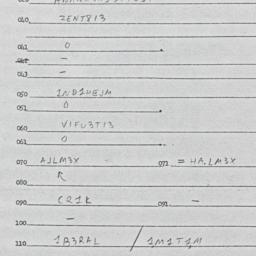 040 ZENT813
041 0
—
043 —
050 1ND1HEJM
051 0
060 VIFU3T13
061 0
070 AJLM3X 071 = HA.LM3X
080
090 CQ1K 091 —
100 —
110 1B3RAL / 1M1T1M